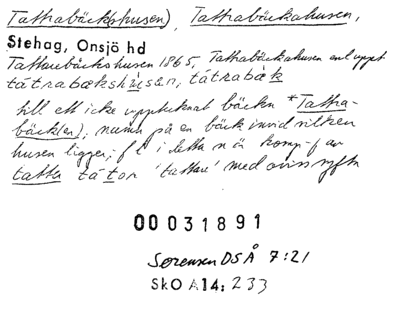 Tattrabäck(shusen), Tattrabäckahusen,
Stehag, Onsjö hd
Tattarebäckshusen 1865, Tattrabäckahusen enl uppt
tátrabækshùsan, tátrabæ̀k
till ett icke upptecknat bäckn *Tattra-
bäck(en), namn på en bäck invid vilken
husen ligger; fl i detta n är komp-f av
tatta tátor 'tattare' med
00031891
Sørensen DSÅ 7:21
SkO A14: 233